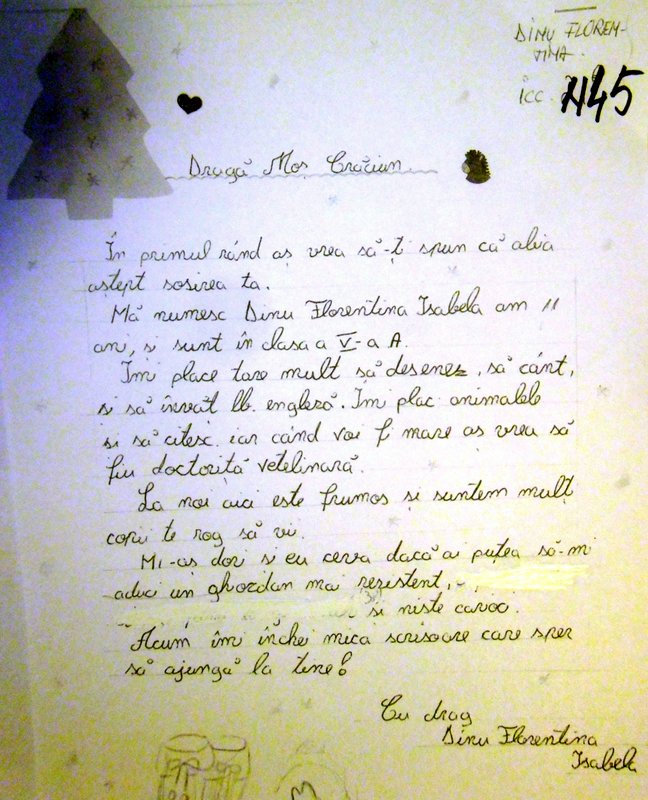 DINU FLOREN-
TINA.
icc. N45
Dragă Moș Crăciun
În primul rând aș vrea să-ți spun că abia
aștept sosirea ta.
Mă numesc Dinu Florentina Isabela am 11
an, și sunt în clasa a V-a A.
Îmi place tare mult să desenez, să cânt,
și să învăț lb. engleză. Îm plac animalele
și să citesc iar când voi fi mare aș vrea să
fiu doctoriță vetelinară.
La noi aici este frumos și suntem mulț
copii te rog să vi.
Mi-aș dori și eu ceva dacă ai putea să-mi
aduci un ghozdan mai rezistent,
și niște carioc.
Acum îm închei mica scrisoare care sper
să ajungă la tine!
Cu drag
Dinu Florentina
Isabela